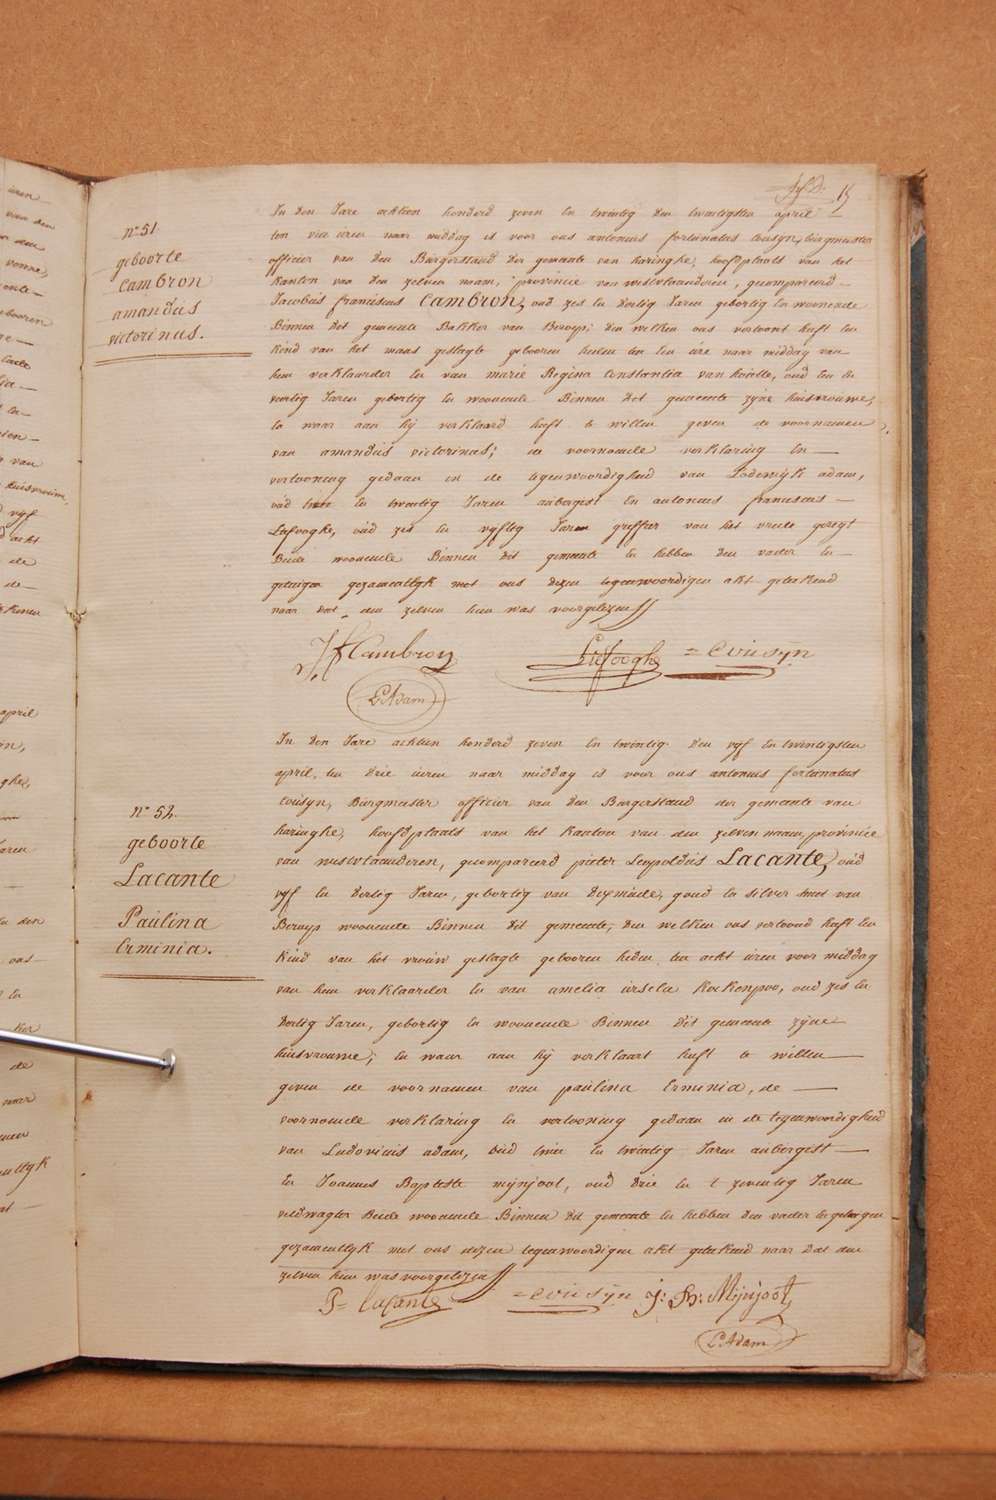 15
n° 51.
geboorte
Cambron
amandus
victorinus.
In den Jare achtien honderd zeven en twintig den twintigsten april
ten vier uren naar middag is voor ons antonius fortunatus Cousyn, burgmeester
officier van den Burgerstaud der gemeente van haringhe, hoofdplaats van het
kanton van den zelven naam, provincie van westvlaanderen, gecompareerd
Jacobus franciscus Cambron, oud zes en dertig Jaren geboortig en woonende
Binnen det gemeente Bakker van Beroep; den welken ons vertoont heeft een
kind van het maas geslagte gebooren heden ten een ure naar middag van
hem verklaarder en van marie Regina Constantia van hoiolle, oud een en
veertig Jaren gebortig en woonende Binnen det gemeente zyne huisvrouwe,
en waar aan hij verklaard heeft te willen geven de voornamen
van amandus victorinus; de voornoemde verklaring en
vertooning gedaan in de tegenwoordigheid van Lodewyk adam,
oud twee en twintig Jaren aubergist en antonius franciscus
Lefooghe, oud zes en vyftig Jaren greffier van het vrede geregt
Beide woonende Binnen dit gemeente en hebben den vader en
getuigen gezamentlyk met ons dezen tegenwoordigen akt geteekend
naar dat den zelven hem was voorgelezen
J. f. Cambron Lefooghe = Cousyn
L. Adam
n° 52.
geboorte
Lacante
Paulina
Erminia.
In den Jare achtien honderd zeven en twintig den vyf en twintigsten
april, ten drie uren naar middag is voor ons antonius fortunatus
Cousyn, Burgmeester officier van den Burgerstaud der gemeente van
haringhe, hoofdplaats van het kanton van den zelven naam, provincie
van westvlaanderen, gecompareerd pieter Leopoldus Lacante, oud
vyf en dertig Jaren, gebortig van dixmude, goud en silver smet van
Beroep woonende Binnen dit gemeente, den welken ons vertoond heeft een
kind van het vrouw geslagte gebooren heden ten acht uren voor middag
van hem verklaarder en van amelia ursela Kockenpoo, oud zes en
dertig Jaren, gebortig en woonende Binnen dit gemeente zyne
huisvrouwe; en waar aan hij verklaart heeft te willen
geven de voornamen van paulina Erminia, de
voornoemde verklaring en vertooning gedaan in de tegenwoordigheid
van Ludovicus adam, oud twee en twintig Jaren aubergist
en Joannes Baptiste mynjoot, oud drie en t zeventig Jaren
veldwagter Beide woonende Binnen dit gemeente en hebben den vader en getuigen
gezamentlyk met ons dezen tegenwoordigen akt geteekend naar dat den
zelven hem was voorgelezen
P= Lacante = Cousyn J: B: Mijnjoot
L. Adam